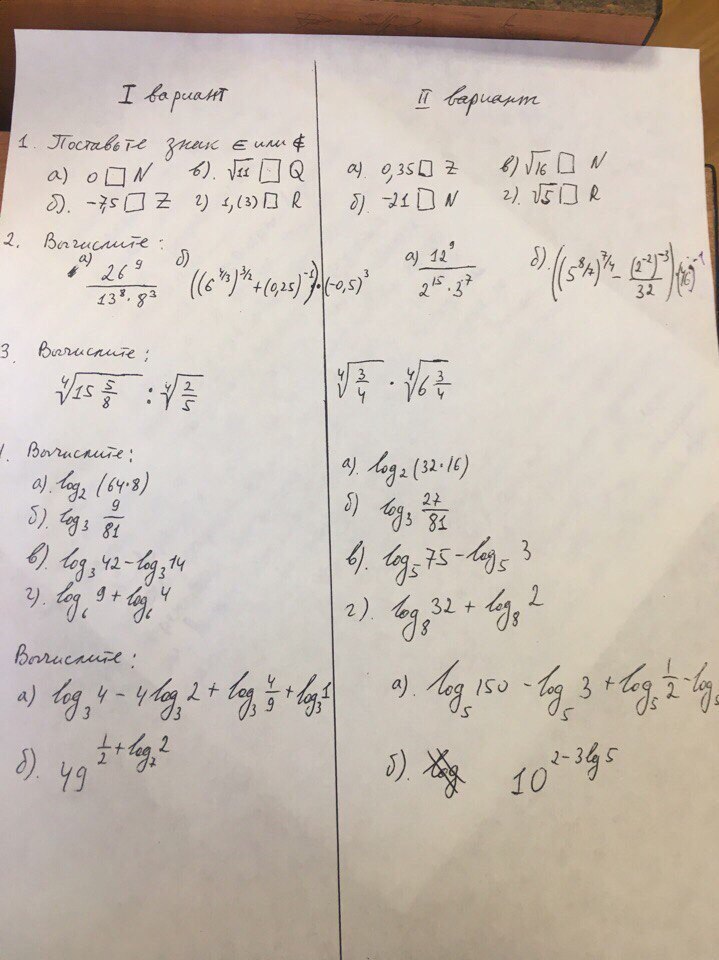 I вариант
1. Поставьте знак ∈ или ∉
а) 0 □ N в). √11 □ Q
б). -7,5 □ Z г) 1,(3) □ R
2. Вычислите:
а) 26⁹ / (13⁸ · 8³) б) ((6^(4/3))^(3/2) + (0,25)^(-1)) · (-0,5)³
3. Вычислите:
⁴√(15 5/8) : ⁴√(2/5)
Вычислите:
а). log₂ (64·8)
б). log₃ 9/81
в). log₃ 42 - log₃ 14
г). log₆ 9 + log₆ 4
Вычислите:
а) log₃ 4 - 4 log₃ 2 + log₃ 4/9 + log₃ 1
б). 49^(1/2 + log₇ 2)
II вариант
а). 0,35 □ Z в) √16 □ N
б) -21 □ N г). √5 □ R
а) 12⁹ / (2¹⁵ · 3⁷) б). ((5^(8/7))^(7/4) - (2^(-2))^(-3) / 32) · (16)^(-1)
⁴√(3/4) · ⁴√(6 3/4)
а). log₂ (32·16)
б) log₃ 27/81
в). log₅ 75 - log₅ 3
г). log₈ 32 + log₈ 2
а). log₅ 150 - log₅ 3 + log₅ 1/2 - log₅
б). 10^(2 - 3 lg 5)